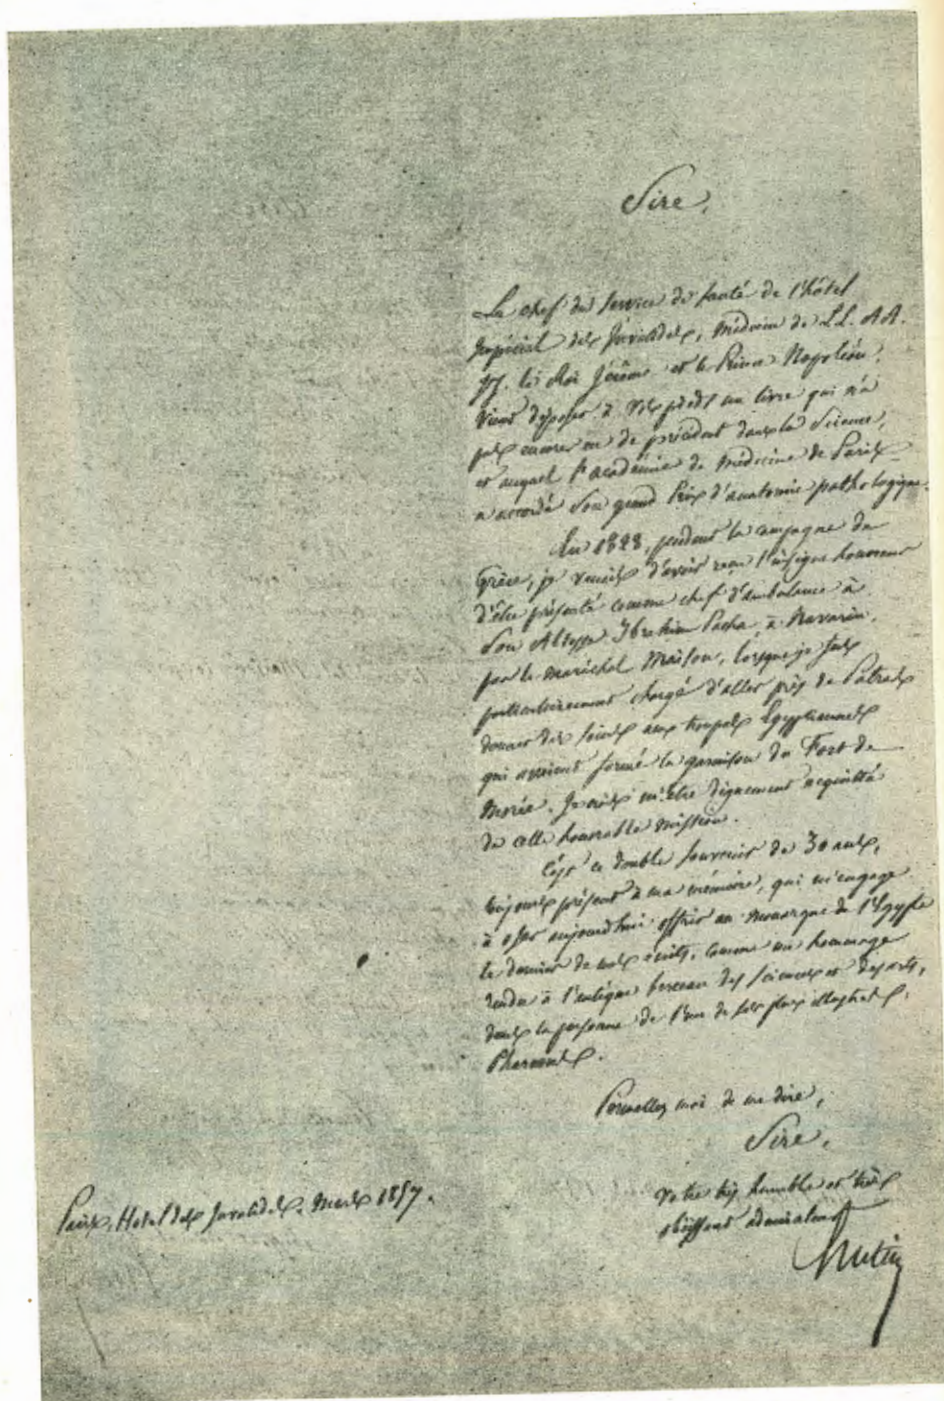 Sire,
Le chef du service de santé de l'hôtel
Impérial des Invalides, Médecin de LL. AA.
II. le Roi Jérôme et le Prince Napoléon,
vient déposer à vos pieds un livre qui n'a
pas encore eu de précédent dans la Science,
et auquel l'académie de Médecine de Paris
a accordé son grand Prix d'anatomie pathologique.
En 1828, pendant la campagne de
Grèce, je venais d'avoir reçu l'insigne honneur
d'être présenté comme chef d'ambulance à
Son Altesse Ibrahim Pacha, à Navarin,
par le maréchal Maison, lorsque je fus
particulièrement chargé d'aller près de Patras
donner des soins aux troupes Egyptiennes
qui avaient formé la garnison du Fort de
Morée. Je crois m'être dignement acquitté
de cette honorable mission.
C'est ce double souvenir de 30 ans,
toujours présent à ma mémoire, qui m'engage
à oser aujourd'hui offrir au monarque de l'Egypte
le dernier de mes écrits, comme un hommage
rendu à l'antique berceau des sciences et des arts,
dans la personne de l'un de ses plus illustres
Pharaons.
Permettez moi de me dire,
Sire,
Votre très humble et très
obéissant admirateur
Hutin
Paris, Hotel des Invalides, Mars 1857.